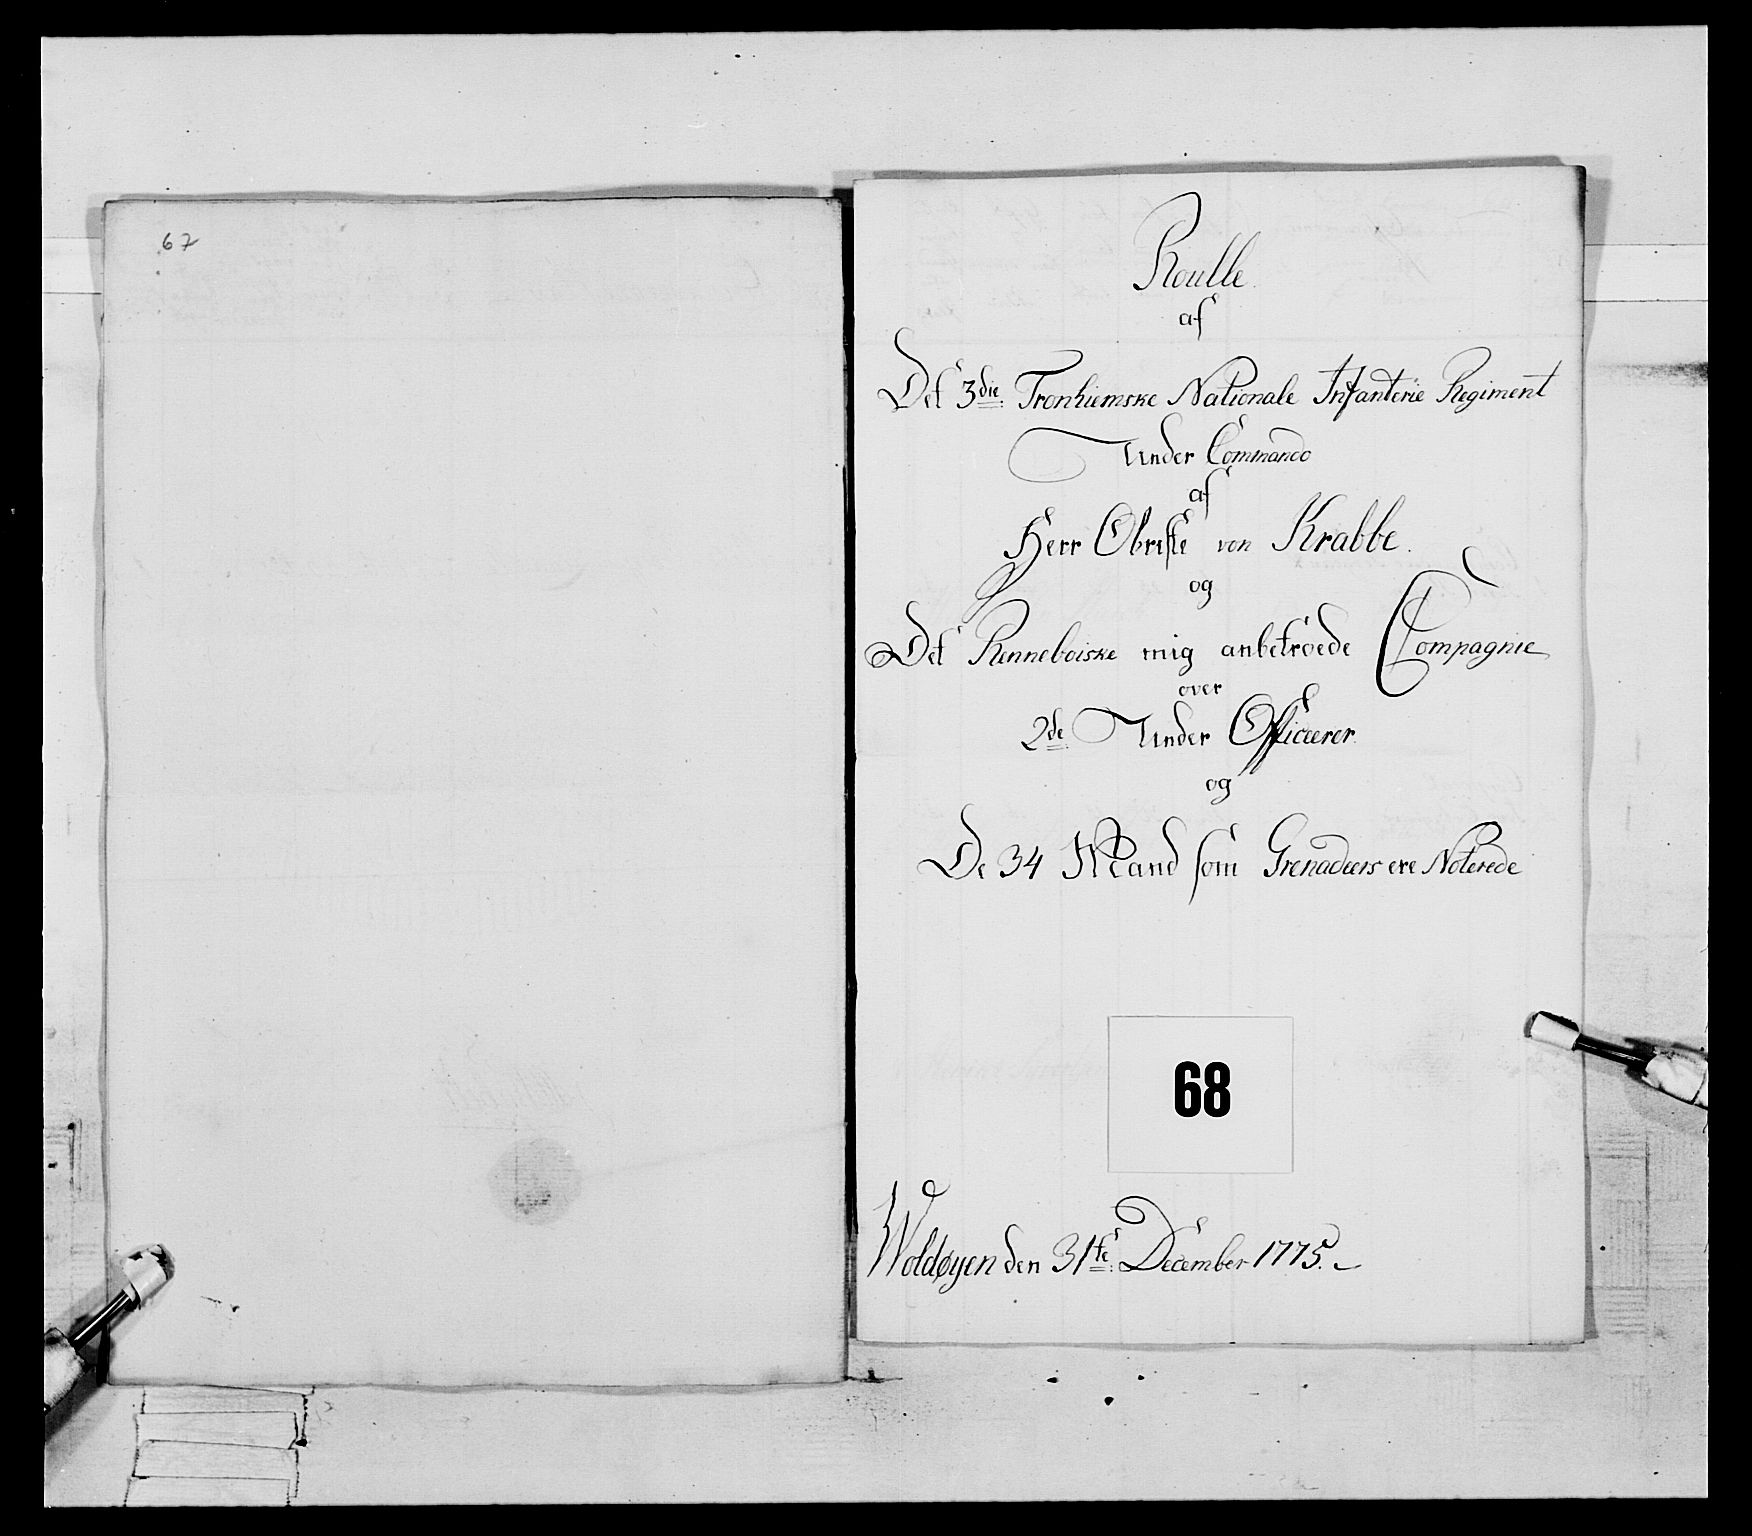 67
Roulle
af
Det 3die Tronhiemske Nationale Infanterie Regiment
Under Commando
af
Herr Obriste von Krabbe.
og
Det Renneboiske mig anbetroede Compagnie
over
2de Under Officerer
og
De 34 Mand som Grenadeers ere Noterede
68
Woldøyen den 31te December 1775.